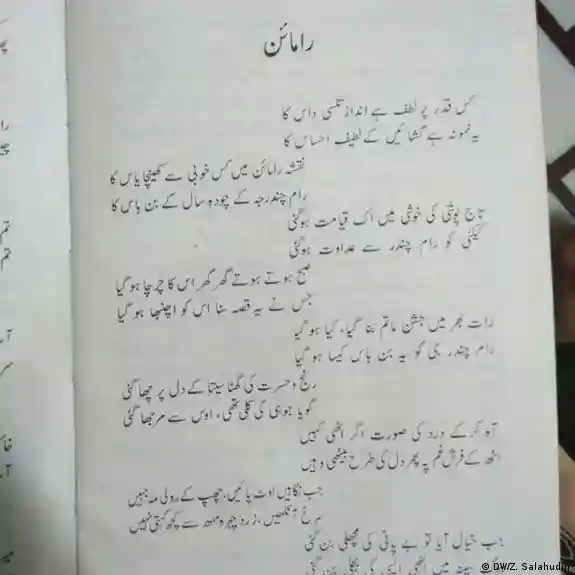 رامائن
کس قدر پر لطف ہے انداز تلسی داس کا
یہ نمونہ ہے گشائیں کے لطیف احساس کا
نقشہ رامائن میں کس خوبی سے کھینچا یاس کا
رام چندرجہ کے چودہ سال کے بن باس کا
تاج پوشی کی خوشی میں اک قیامت ہوگئی
کیکئی کو رام چندر سے عداوت ہوگئی
صبح ہوتے ہوتے گھر گھر اس کا چرچا ہو گیا
جس نے یہ قصہ سنا اس کو اچنبھا ہو گیا
رات بھر میں جشن ماتم بنا گیا، کیا ہو گیا
رام چندر جی کو یہ بن باس کیسا ہو گیا
رنج و حسرت کی گھٹا سیتا کے دل پر چھا گئی
گویا جوہی کی کلی تھی، اوس سے مرجھا گئی
آہ کر کے درد کی صورت اگر اٹھی کہیں
اٹھ کے فرش غم پہ پھر دل کی طرح بیٹھی وہیں
جب نگاہیں اوٹ پائیں، چھپ کے رو لی مہ جبیں
سرخ آنکھیں، زرد چہرہ منھ سے کچھ کہتی نہیں
جب خیال آیا تو بے پانی کی مچھلی بن گئی
سینہ میں اٹھی
© DW/Z. Salahudin